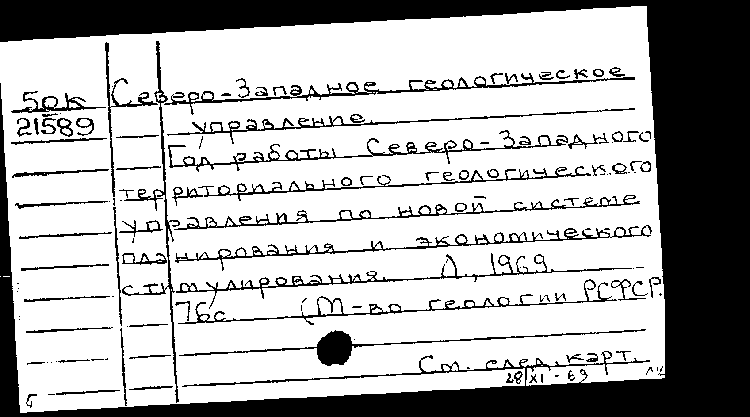 50к Северо-Западное геологическое
21589 управление.
Год работы Северо-Западного
территориального геологического
управления по новой системе
планирования и экономического
стимулирования. Л., 1969.
76с (М-во геологии РСФСР.
См. след. карт.
28/XI-69